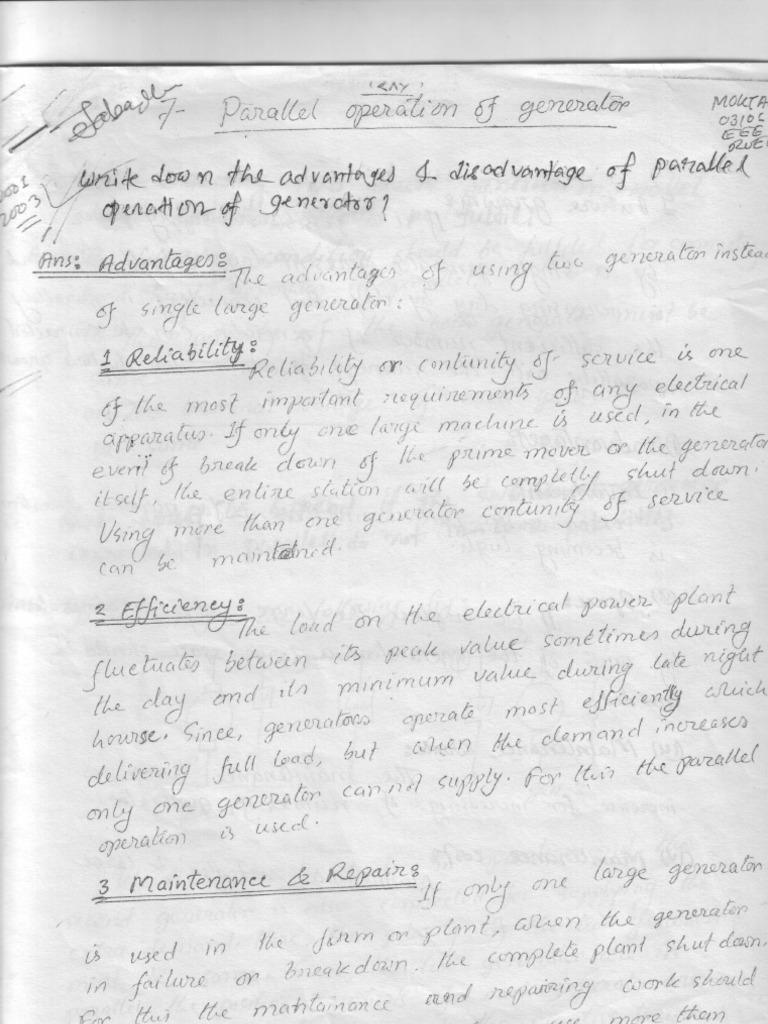 7- Parallel operation of generator
MOKTA
0310
EEE
RUE
2001
2003
Write down the advantages & disadvantage of parallel
operation of generator?
Ans: Advantages:
The advantages of using two generator instead
of single large generator:
1 Reliability:
Reliability or contunity of service is one
of the most important requirements of any electrical
apparatus. If only one large machine is used, in the
event of break down of the prime mover or the generator
itself, the entire station will be completly shut down.
Using more than one generator contunity of service
can be maintained.
2 Efficiency:
The load on the electrical power plant
fluctuates between its peak value sometimes during
the day and its minimum value during late night
hourse. Since, generators operate most efficiently which
delivering full load, but when the demand increases
only one generator can not supply. For this the parallel
operation is used.
3 Maintenance & Repair:
If only one large generator
is used in the firm or plant, when the generator
in failure or breakdown. the complete plant shut down.
For this the maintainance and repairing work should
more than